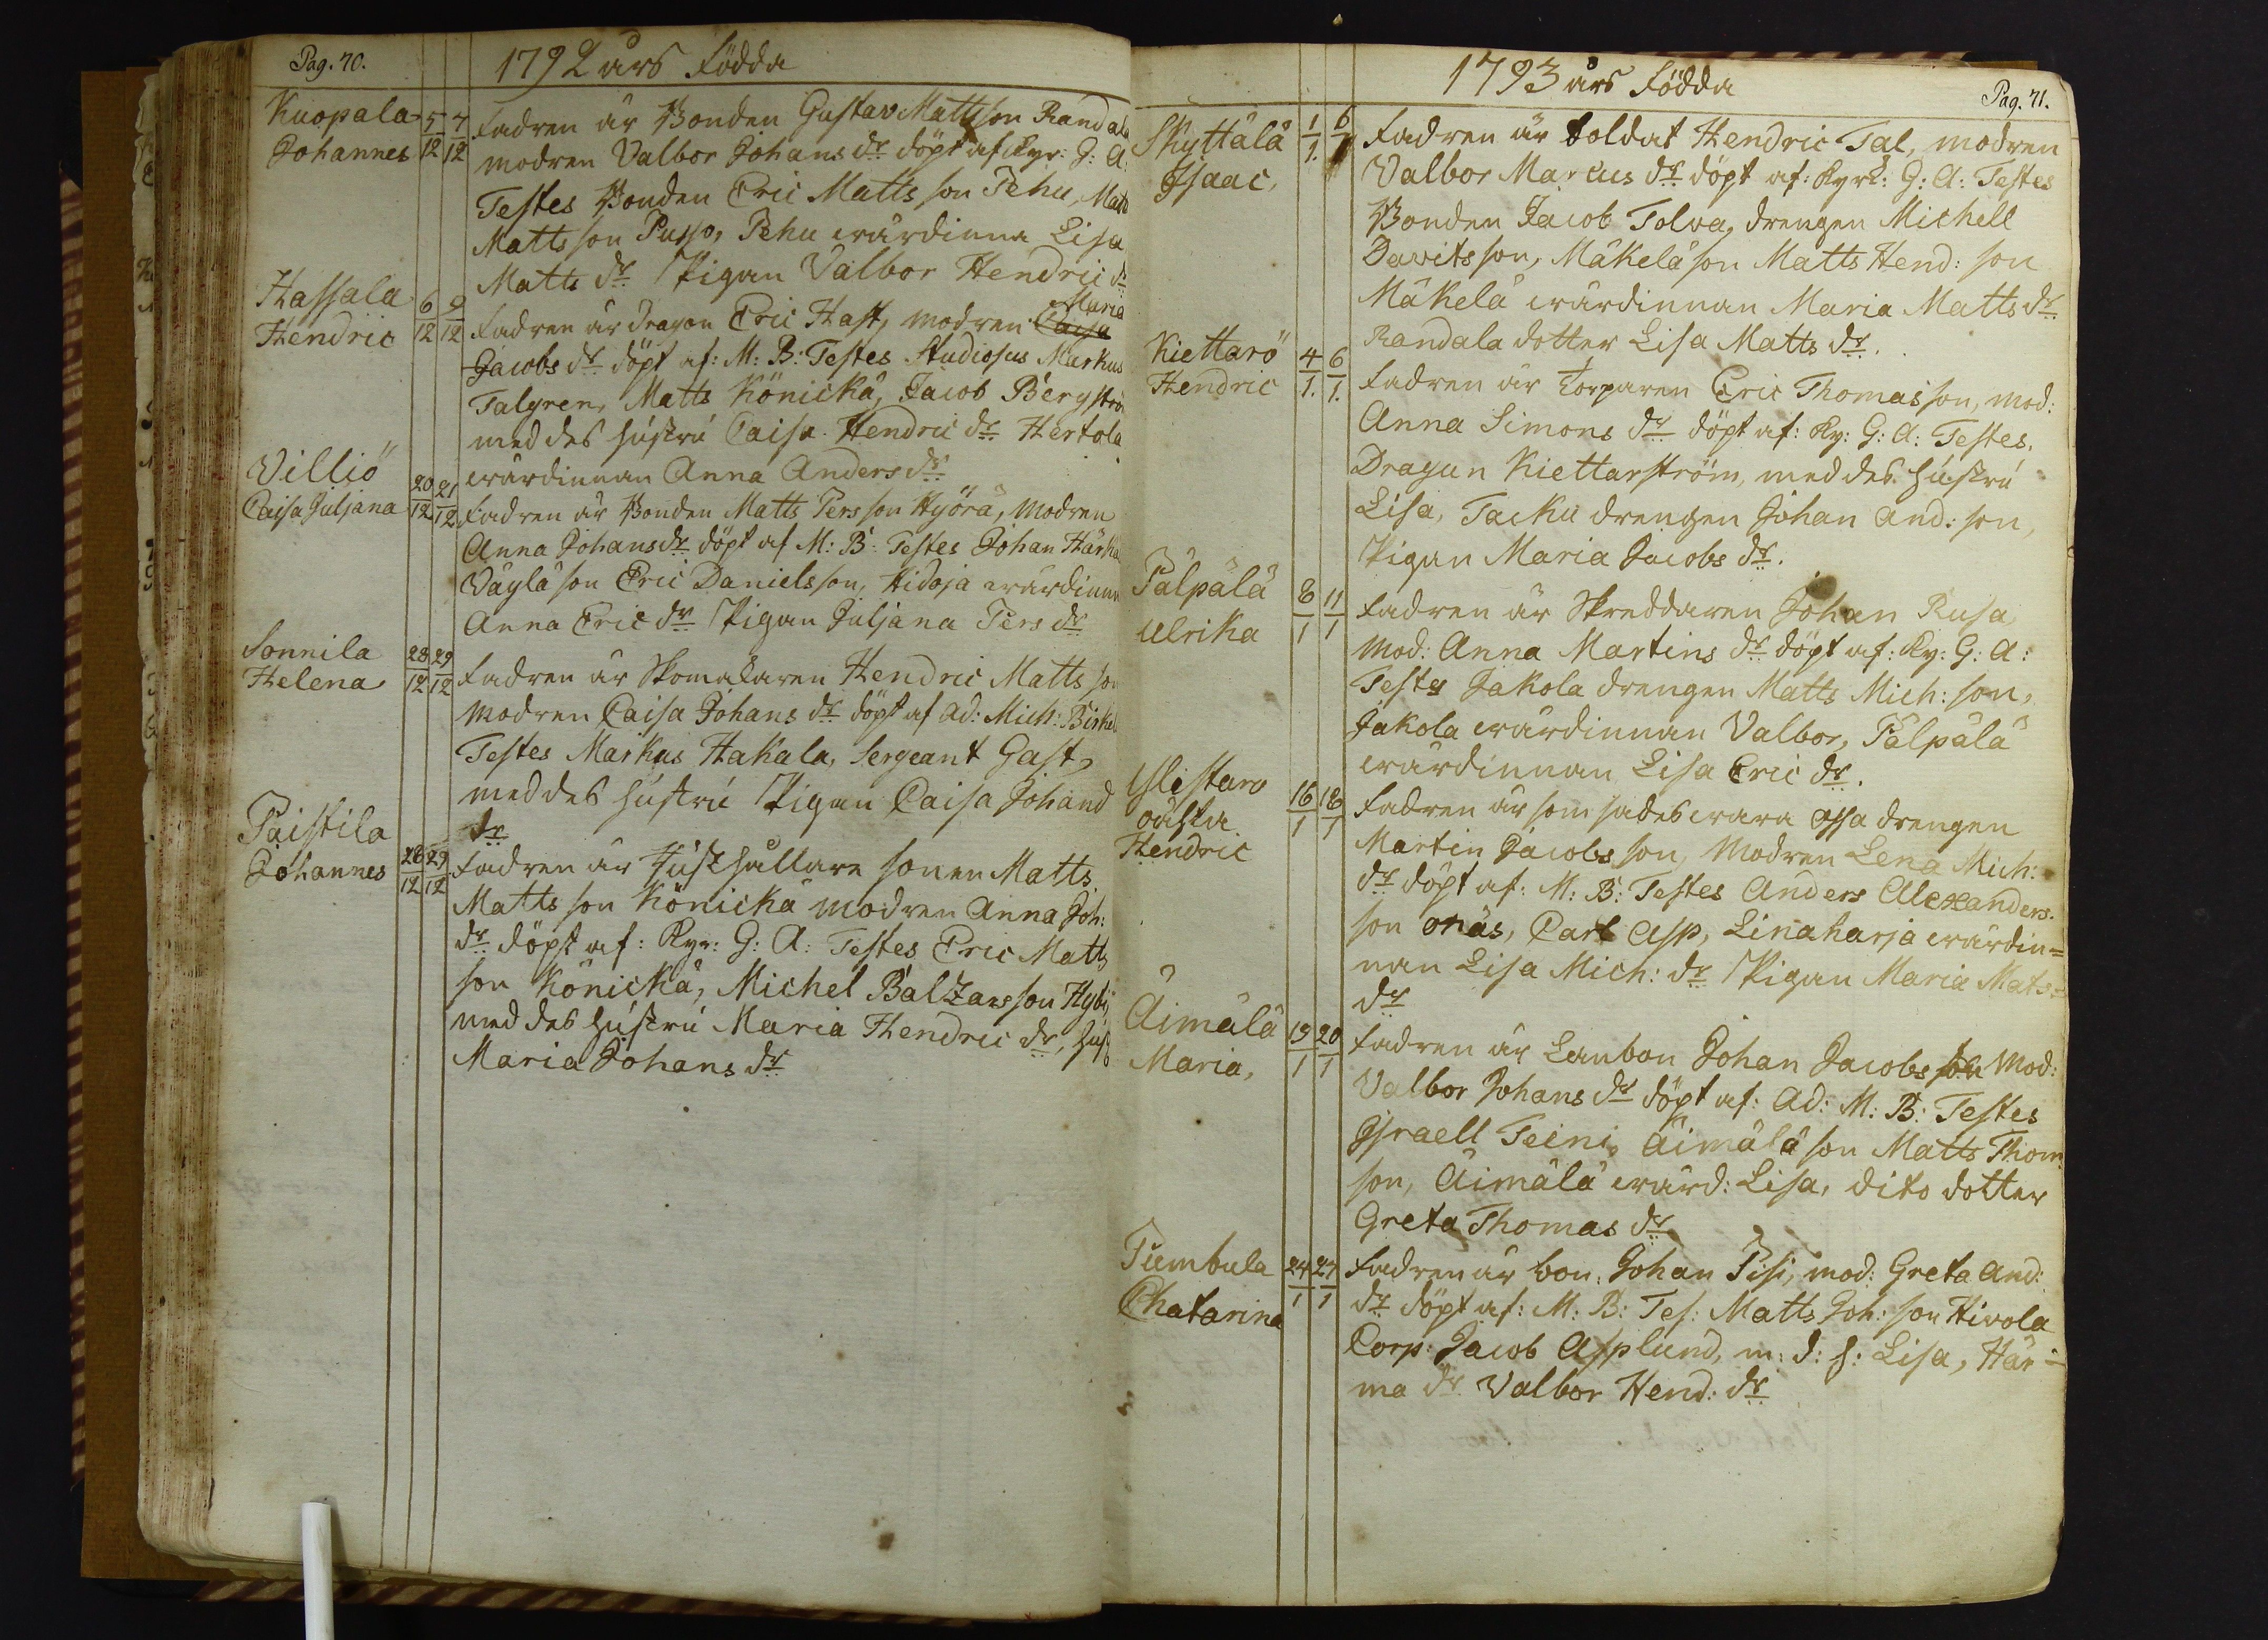 Pag. 70.
1792 års Födda
Kuopala
Johannes
5/12 7/12
Fadren är Bonden Gustav Mattsson Randala
modren Valbor Johans dr döpt af Kyr: G: A:
Testes Bonden Eric Matts son Pehu, Matts
Matts son Pusso, Pehu wärdinna Lisa
Matts dr Pigan Valbor Hendric dr
Hassala
Hendric
6/12 9/12
Maria
Fadren är dragon Eric Hast, modren Caisa
Jacobs dr döpt af: M: B: Testes Studiosus Markus
Talgren, Matts Könickä, Jacob Bergström
med des hustru Caisa Hendric dr Hertola
wärdinnan Anna Anders dr
Williö
Caisa Juljana
20/12 21/12
Fadren är Bonden Matts Pers son Hyörä, modren
Anna Johans dr döpt af M: B: Testes Johan Härkä
Wäylä son Eric Danielsson, Hidoja wärdinna
Anna Eric dr Pigan Juljana Pers dr
Sonnila
Helena
28/12 29/12
Fadren är Skomakaren Hendric Matts son
modren Caisa Johans dr döpt af Ad: Mich:
Testes Markus Hakala, Sergeant Gast,
med des hustru Pigan Caisa Johand
dr
Paistila
Johannes
28/12 29/12
Fadren är Hushållare sonen Matts
Matts son Könickä modren Anna Joh:
dr döpt af: Kyr: G: A: Testes Eric Matts
son Könickä, Michel Baltzars son
med des hustru Maria Hendric dr,
Maria Johans dr
1793 års Födda
Pag. 71.
Skyttälä
Isaac,
1/1. 6/1
Fadren är Soldat Hendric Tal, modren
Valbor Marcus dr döpt af: Kyrk: G: A: Testes
Bonden Jacob Tolva, drengen Michell
Davits son, Mäkelä son Matts Hend: son
Mäkelä wärdinnan Maria Matts dr
Randala dotter Lisa Matts dr.
Kiettarö
Hendric
4/1. 6/1.
Fadren är Torparen Eric Thomasson, mod:
Anna Simons dr döpt af: Ky: G: A: Testes.
Dragun Kiettarström, med des hustru
Lisa, Tacku drengen Johan And: son,
Pigan Maria Jacobs dr.
Pälpälä
Ulrika
8/1 11/1
Fadren är Skreddaren Johan Rusa
mod: Anna Martins dr döpt af: Ky: G: A:
Testes Jakola drengen Matts Mich: son,
Jakola wärdinnan Valbor, Pälpälä
wärdinnan Lisa Eric dr.
Ylistaro
oächta
Hendric
16/1 18/1
Fadren är som sades wara assa drengen
Martin Jacobs son, Modren Lena Mich:
dr döpt af: M: B: Testes Anders Alexanders
son onäs, Carl Asp, Linaharja wärdin=
nan Lisa Mich: dr Pigan Maria Mats=
dr
Äimälä
Maria,
19/1 20/1
Fadren är Lanbon Johan Jacobs son mod:
Valbor Johans dr döpt af: Ad: M: B: Testes
Israell Teini, Äimälä son Matts Thom:
son, Äimälä wärd: Lisa, dito dotter
Greta Thomas dr
Pumbula
Chatarina
24/1 27/1
Fadren är bon: Johan Pisi, mod: Greta And:
dr döpt af: M: B: Tes: Matts Joh: son Hivola
Corp: Jacob Asplund, m: d: h: Lisa, Här=
ma dr Valbor Hend: dr